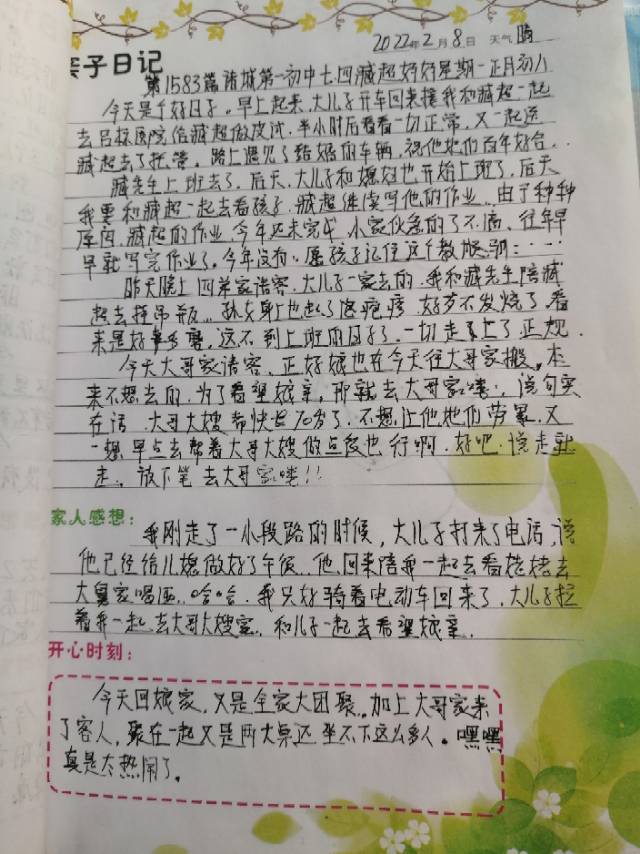 亲子日记
2022年2月8日 天气 晴
第1583篇诸城第一初中七四臧超好好星期一正月初八
今天是个好日子。早上起来，大儿子开车回来接我和臧超一起
去吕标医院给臧超做皮试，半小时后看看一切正常，又一起送
臧超去了托管。路上遇见了结婚的车辆，祝他她们百年好合。
臧先生上班去了，后天，大儿子和媳妇也开始上班了，后天
我要和臧超一起去看孩子，臧超继续写他的作业，由于种种
原因，臧超的作业，今年还未完成，小家伙急的了不滴，往年早
早就写完作业了，今年没有，愿孩子记住这个教
昨天晚上四弟家请客，大儿子一家去的，我和臧先生陪臧
超去挂吊瓶，孙女身上也起了疱疹，好歹不发烧了，看
来是好事多磨，这不到上班的日子了，一切走上了正规。
今天大哥家请客，正好娘也在今天往大哥家搬，本
来不想去的，为了看望娘亲，那就去大哥家喽，说句实
在话，大哥大嫂都快70岁了，不想让他她们劳累，又
一想，早点去帮着大哥大嫂做点饭也行啊，好吧，说走就
走，放下笔去大哥家喽！！
家人感想：
我刚走了一小段路的时候，大儿子打来了电话，说
他已经给儿媳做好了午饭，他回来陪我一起去看姥姥去
大舅家喝酒，哈哈，我只好骑着电动车回来了，大儿子拉
着我一起去大哥大嫂家，和儿子一起去看望娘亲。
开心时刻：
今天回娘家，又是全家大团聚，加上大哥家来
了客人，聚在一起又是两大桌还坐不下这么多人。嘿嘿
真是太热闹了。